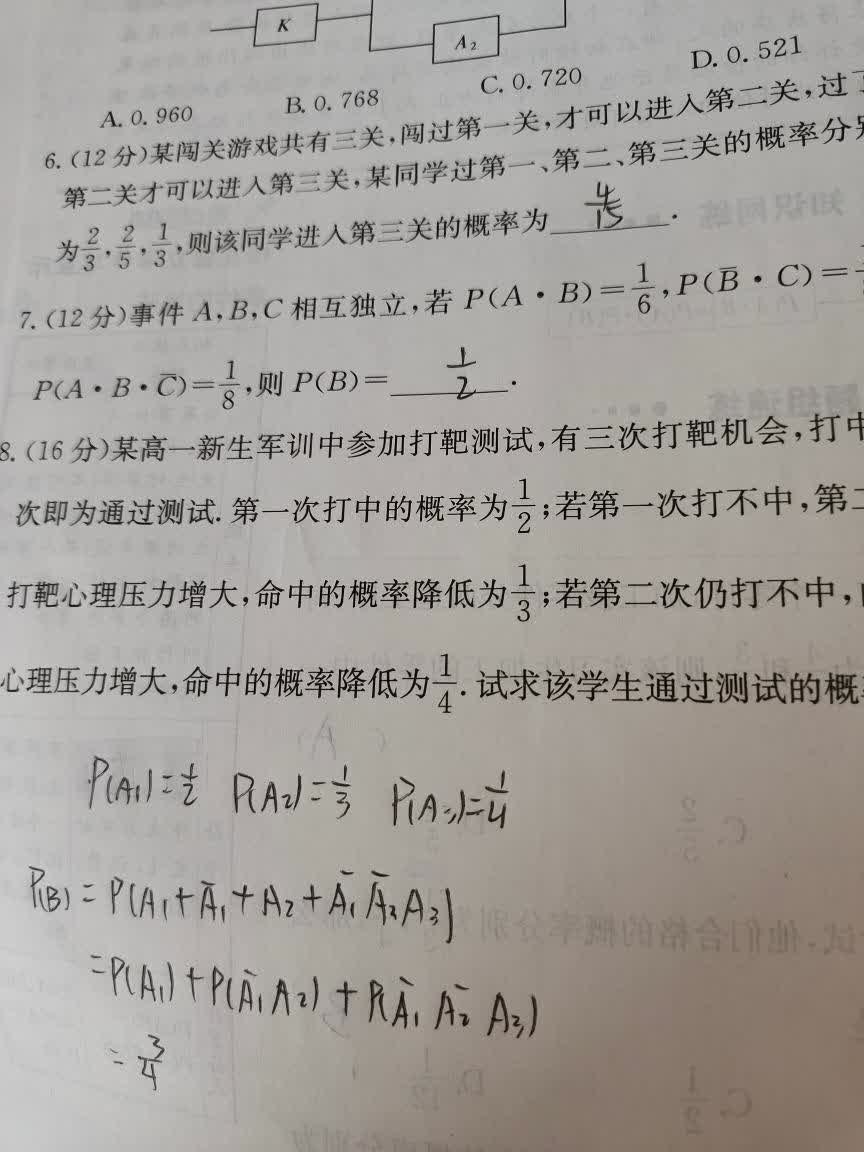 K
A₂
A. 0. 960 B. 0. 768 C. 0. 720 D. 0. 521
6. (12分)某闯关游戏共有三关,闯过第一关,才可以进入第二关,过了
第二关才可以进入第三关,某同学过第一、第二、第三关的概率分别
为2/3,2/5,1/3,则该同学进入第三关的概率为 4/15 .
7. (12分)事件 A,B,C 相互独立,若 P(A·B)=1/6,P(B̄·C)=
P(A·B·C̄)=1/8,则 P(B)= 1/2 .
8. (16分)某高一新生军训中参加打靶测试,有三次打靶机会,打中
次即为通过测试. 第一次打中的概率为1/2;若第一次打不中,第二
打靶心理压力增大,命中的概率降低为1/3;若第二次仍打不中,
心理压力增大,命中的概率降低为1/4. 试求该学生通过测试的概
P(A₁)=1/2 P(A₂)=1/3 P(A₃)=1/4
P(B)=P(A₁+Ā₁+A₂+Ā₁Ā₂A₃)
=P(A₁)+P(Ā₁A₂)+P(Ā₁Ā₂A₃)
=3/4